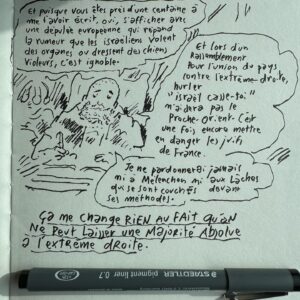 Et puisque vous êtes près d'une centaine à
me l'avoir écrit, oui, s'afficher avec
une députée européenne qui répand
la rumeur que les israéliens volent
des organes ou dressent des chiens
violeurs, c'est ignoble.
Et lors d'un
Rassemblement
pour l'union du pays
contre l'extrême-droite,
hurler
"israël casse-toi"
n'aidera pas le
Proche-Orient. C'est
une fois encore mettre
en danger les juifs
de France.
Je ne pardonnerai jamais
ni à Mélenchon ni aux lâches
qui se sont couchés devant
ses méthodes.
Ça me change RIEN AU FAIT QU'ON
NE PEUT LAISSER UNE MAJORITÉ ABSOLUE
à l'EXTRÊME DROITE.
STAEDTLER pigment liner 0.7